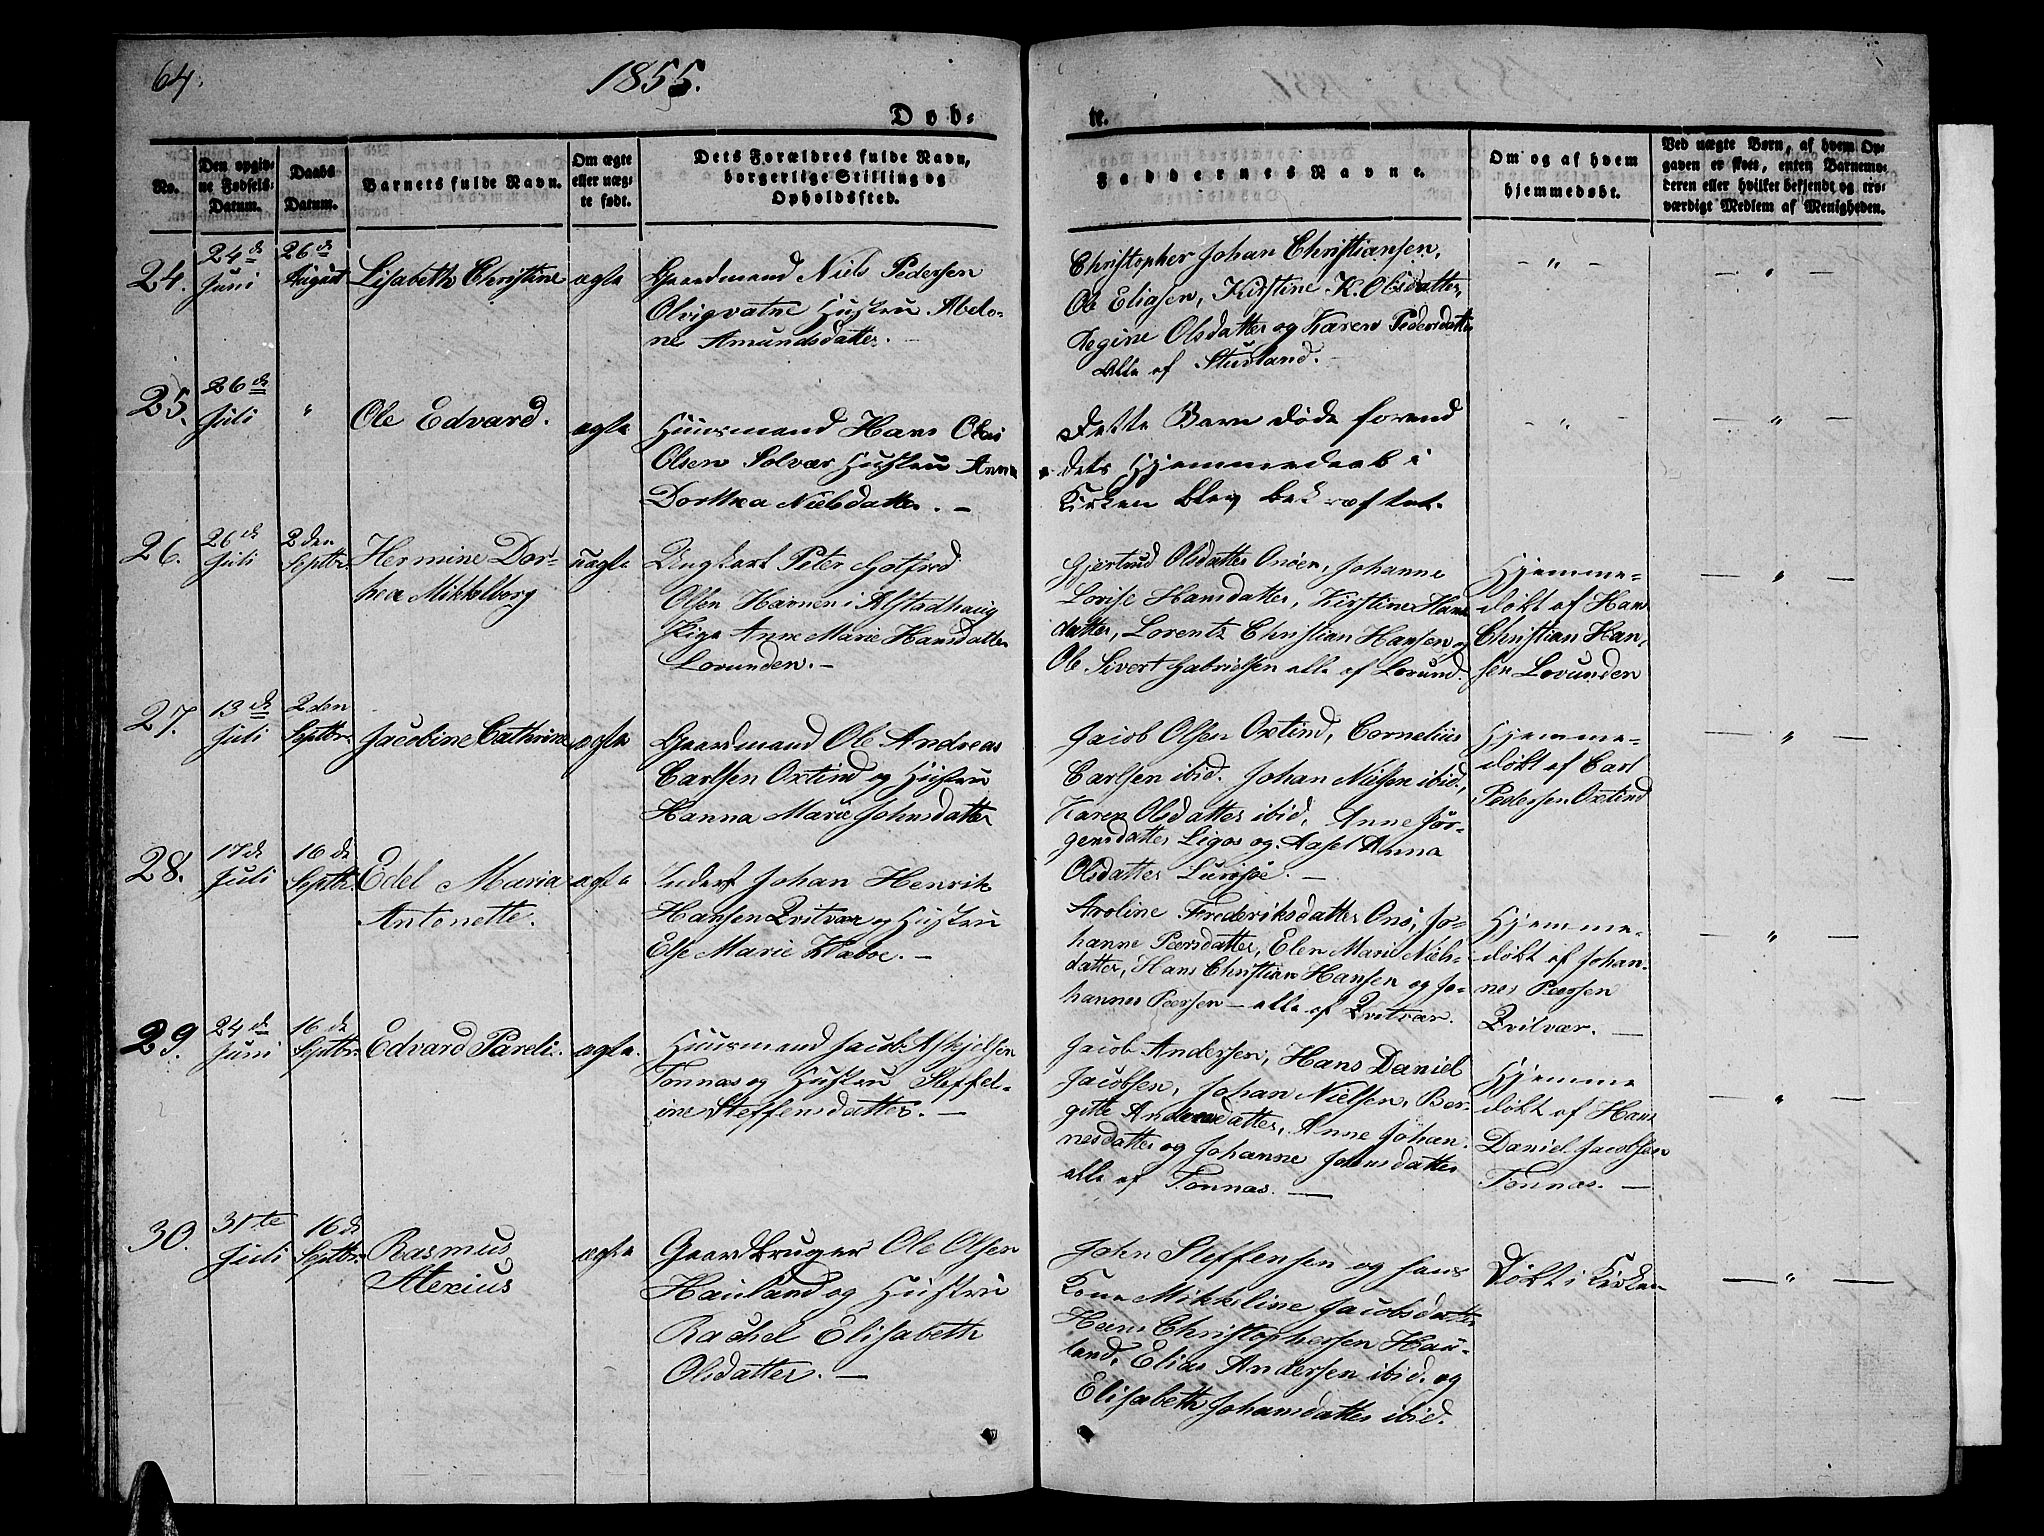 64.
1855.
Døb-
te.
No.
Den opgiv-
ne Fødsels-
Datum.
Daabs
Datum.
Barnets fulde Navn.
Om ægte
eller uæg-
te født.
Dets Forældres fulde Navn,
borgerlige Stilling og
Opholdssted.
Faddernes Navne.
Om og af hvem
hjemmedøbt.
Ved uægte Børn, af hvem Op-
gaven er skeet, enten Barnemo-
deren eller hvilket bekjendt og tro-
værdigt Medlem af Menigheden.
24.
24 d
Juni
26 d
August
Lisabeth Christine
ægte
Gaardmand Niels Pedersen
Olvigvatne Hustru Abelo-
ne Amundsdatter. -
Christopher Johan Christiansen,
Ole Eliasen, Kirstine K. Olsdatter,
Regine Olsdatter og Karen Pedersdatter
Alle af Stuvland. -
- " -
- " -
25.
26 d
Juli
"
Ole Edvard.
ægte
Huusmand Hans Olai
Olsen Solvær Hustru Anne
Dorthea Nielsdatter. -
Dette Barn døde forend
dets Hjemmedaab i
Kirken blev bekræftet.
- " -
- " -
26.
26 d
Juli
2 den
Septbr.
Hermine Dort-
hea Mikkelborg
uægte
Ungkarl Peter Gotfred
Olsen Havnen i Alstadhaug
Pige Anne Marie Hansdatter
Lovunden. -
Gjertrud Olsdatter Onøen, Johanne
Lovise Hansdatter, Kirstine Hans
datter, Lorentz Christian Hansen og
Ole Sivert Gabrielsen alle af Lovund.
Hjemme-
døbt af Hans
Christian Han-
sen Lovunden
- " -
27.
13 d
Juli
2 den
Septbr.
Jacobine Cathrine
ægte
Gaardmand Ole Andreas
Carlsen Oxtind og Hustru
Hanna Marie Johnsdatter
Jacob Olsen Oxtind, Cornelius
Carlsen ibid. Johan Nielsen ibid.,
Karen Olsdatter ibid, Anne Jør-
gensdatter Ligos og Aasel Anna
Olsdatter Lurøe. -
Hjemme-
døbt af Carl
Pedersen Oxtind
- " -
28.
17 d
Juli
16 d
Septbr.
Edel Maria
Antonette.
ægte
Inderst Johan Henrik
Hansen Qvitvær og Hustru
Else Marie Klæboe. -
Aroline Frederiksdatter Onø, Jo-
hanne Peersdatter, Elen Marie Niels-
datter, Hans Christian Hansen og Jo-
hannes Peersen - alle af Qvitvær.
Hjemme-
døbt af Johan-
nes Peersen
Qvitvær. -
- " -
29.
24 d
Juni
16 d
Septbr.
Edvard Pareli.
ægte.
Huusmand Jacob Askjelsen
Tonnæs og Hustru Steffel-
ine Steffensdatter. -
Jacob Andersen, Hans Daniel
Jacobsen, Johan Nielsen, Ber-
gitte Andersdatter, Anne Johan-
nesdatter og Johanne Johnsdatter
alle af Tonnæs. -
Hjemme
døbt af Hans
Daniel Jacobsen
Tonnæs. -
- " -
30.
31 te
Juli
16 d
Septbr.
Rasmus
Alexius
ægte
Gaardbruger Ole Olsen
Hauland og Hustru
Rachel Elisabeth
Olsdatter. -
John Steffensen og hans
Kone Mikkeline Jacobsdatter
Hans Christophersen Hau-
land. Elias Andersen ibid. og
Elisabeth Johansdatter ibid.
Døbt i Kirken
- " -